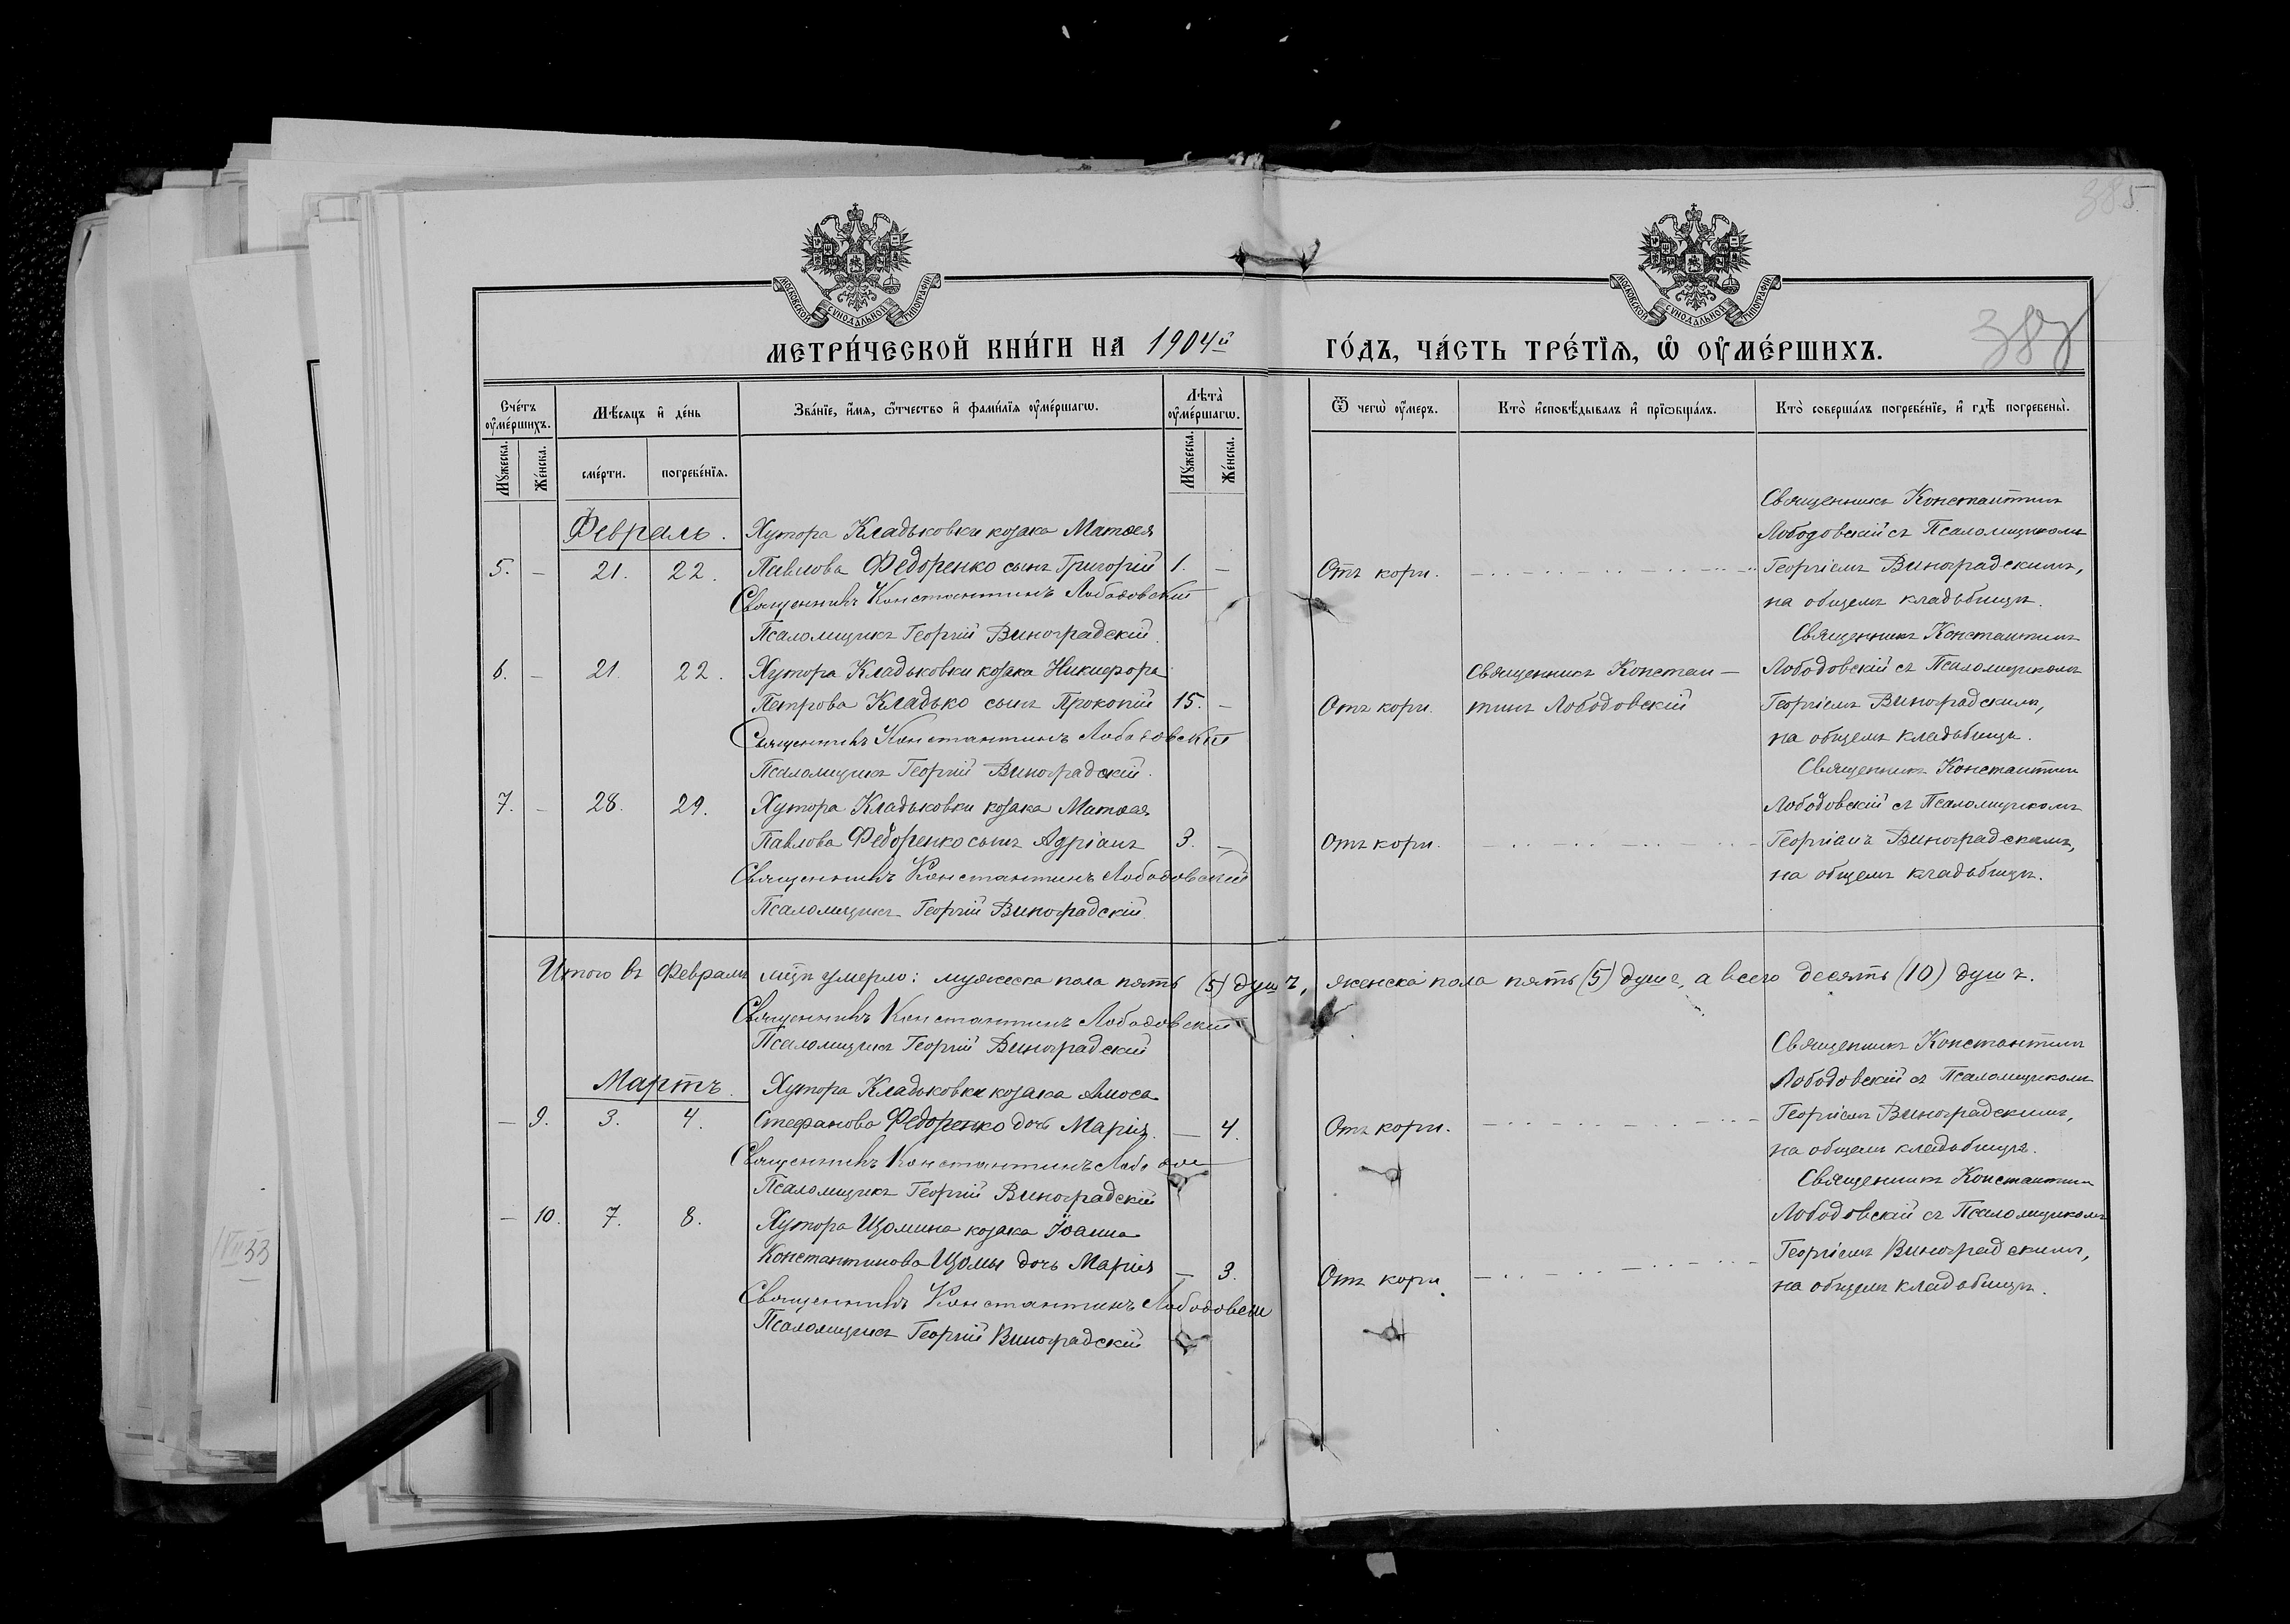 385
387
МОСКОВСКОЙ СѴНОДАЛЬНОЙ ТИПОГРАФІИ
МОСКОВСКОЙ СѴНОДАЛЬНОЙ ТИПОГРАФІИ
МЕТРИ́ЧЕСКОЙ КНИ́ГИ НА 1904й ГО́ДЪ, ЧА́СТЬ ТРЕ́ТІѦ, Ѡ ОУ҆МЕ́РШИХЪ.
Сче́тъ оу҆ме́ршихъ.
Мꙋ́жеска.
Же́нска.
Мѣ́сѧцъ и҆ де́нь
сме́рти.
погребе́нїѧ.
Зва́нїе, и҆́мѧ, ѻ҆́тчество и҆ фами́лїѧ оу҆ме́ршагѡ.
Лѣ́та оу҆ме́ршагѡ.
Мꙋ́жеска.
Же́нска.
Ѿ чегѡ̀ оу҆́меръ.
Кто̀ и҆сповѣ́дывалъ и҆ прїѡбща́лъ.
Кто̀ соверша́лъ погребе́нїе, и҆ гдѣ̀ погребены̀.
Февраль.
Хутора Кладьковки козака Матѳея
5. – 21. 22. Павлова Федоренко сынъ Григорій 1. –
Священникъ Константинъ Лободовскій
Псаломщикъ Георгій Виноградскій.
Отъ кори.
Священникъ Константинъ
Лободовскій съ Псаломщикомъ
Георгіемъ Виноградскимъ,
на общемъ кладбищѣ.
6. – 21. 22. Хутора Кладьковки козака Никифора
Петрова Кладько сынъ Прокопій 15. –
Священникъ Константинъ Лободовскій
Псаломщикъ Георгій Виноградскій.
Отъ кори.
Священникъ Констан-
тинъ Лободовскій
Священникъ Константинъ
Лободовскій съ Псаломщикомъ
Георгіемъ Виноградскимъ,
на общемъ кладьбищѣ.
7. – 28. 29. Хутора Кладьковки козака Матѳея
Павлова Федоренко сынъ Адріанъ 3. –
Священникъ Константинъ Лободовскій
Псаломщикъ Георгій Виноградскій.
Отъ кори.
Священникъ Константинъ
Лободовскій съ Псаломщикомъ
Георгіемъ Виноградскимъ,
на общемъ кладьбищѣ.
Итого въ Февралѣ мцѣ умерло: мужеска пола пять (5) душъ, женска пола пять (5) душъ, а всего десять (10) душъ.
Священникъ Константинъ Лободовскій
Псаломщикъ Георгій Виноградскій
Мартъ.
Хутора Кладьковки козака Амоса
– 9. 3. 4. Стефанова Федоренко дочь Марія. – 4.
Священникъ Константинъ
Псаломщикъ Георгій Виноградскій
Отъ кори.
Священникъ Константинъ
Лободовскій съ Псаломщикомъ
Георгіемъ Виноградскимъ,
на общемъ кладьбищѣ.
– 10. 7. 8. Хутора Щомина козака Іоанна
Константинова Щомы дочь Марія – 3.
Священникъ Константинъ Лободовскій
Псаломщикъ Георгій Виноградскій
Отъ кори.
Священникъ Константинъ
Лободовскій съ Псаломщикомъ
Георгіемъ Виноградскимъ,
на общемъ кладьбищѣ.